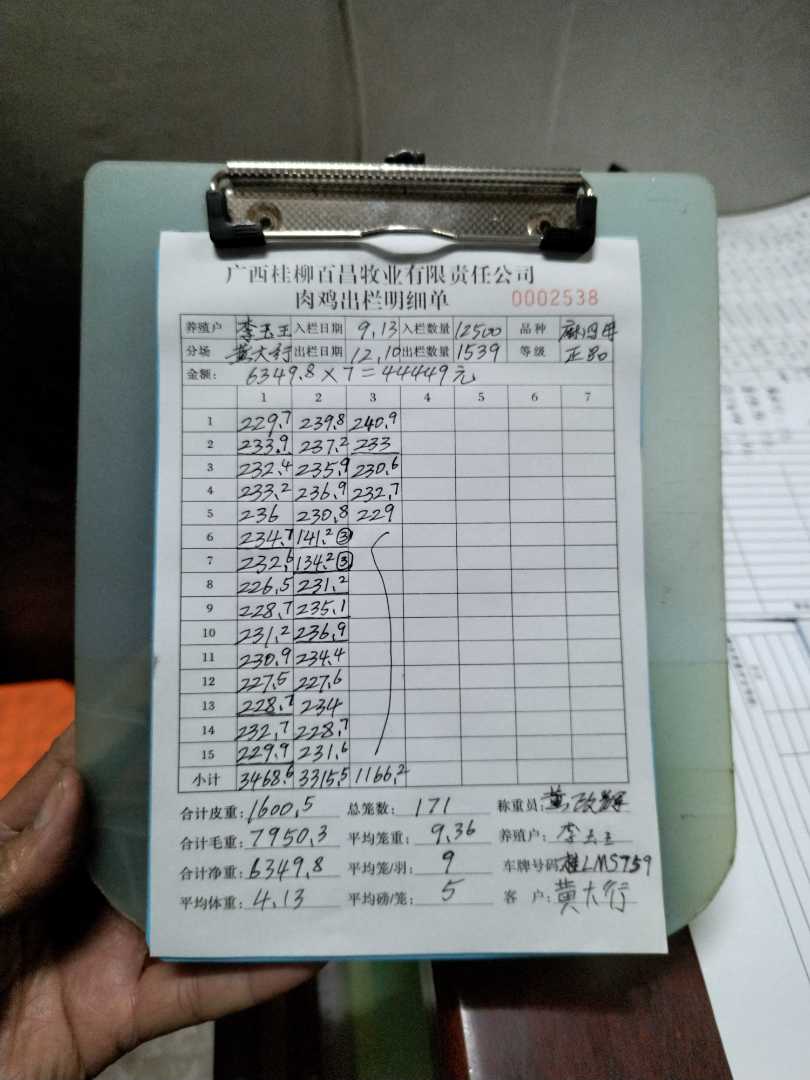 广西桂柳百昌牧业有限责任公司
肉鸡出栏明细单 0002538
养殖户 李玉王 入栏日期 9.13 入栏数量 12500 品种
分场 黄大行 出栏日期 12.10 出栏数量 1539 等级 正品
金额: 6349.8×7=44449元
1 2 3 4 5 6 7
1 229.7 239.8 240.9
2 233.9 237.2 233
3 232.4 235.9 230.6
4 233.2 236.9 232.7
5 236 230.8 229
6 234.7 141.2 ③
7 232.6 134.2 ③
8 226.5 231.2
9 228.7 235.1
10 231.2 236.9
11 230.9 234.4
12 227.5 227.6
13 228.7 234
14 232.7 228.7
15 229.9 231.6
小计 3468.6 3315.5 1166.2
合计皮重: 1600.5 总笼数: 171 称重员:
合计毛重: 7950.3 平均笼重: 9.36 养殖户: 李玉王
合计净重: 6349.8 平均笼/羽: 9 车牌号码: 桂LMS759
平均体重: 4.13 平均磅/笼: 5 客户: 黄大行